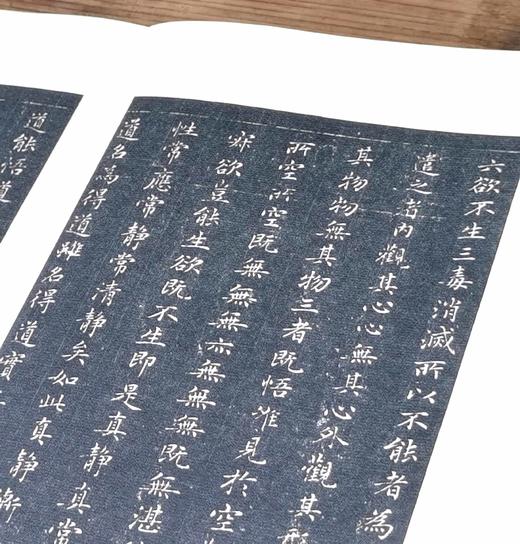 六欲不生三毒消滅所以不能者為
遣之者內觀其心心無其心外觀其形
其物物無其物三者既悟唯見於空
所空所空既無無無亦無無無既無湛
寂欲豈能生欲既不生即是真靜真常
性常應常靜常清靜矣如此真靜漸
道名為得道雖名得道實
道能悟道